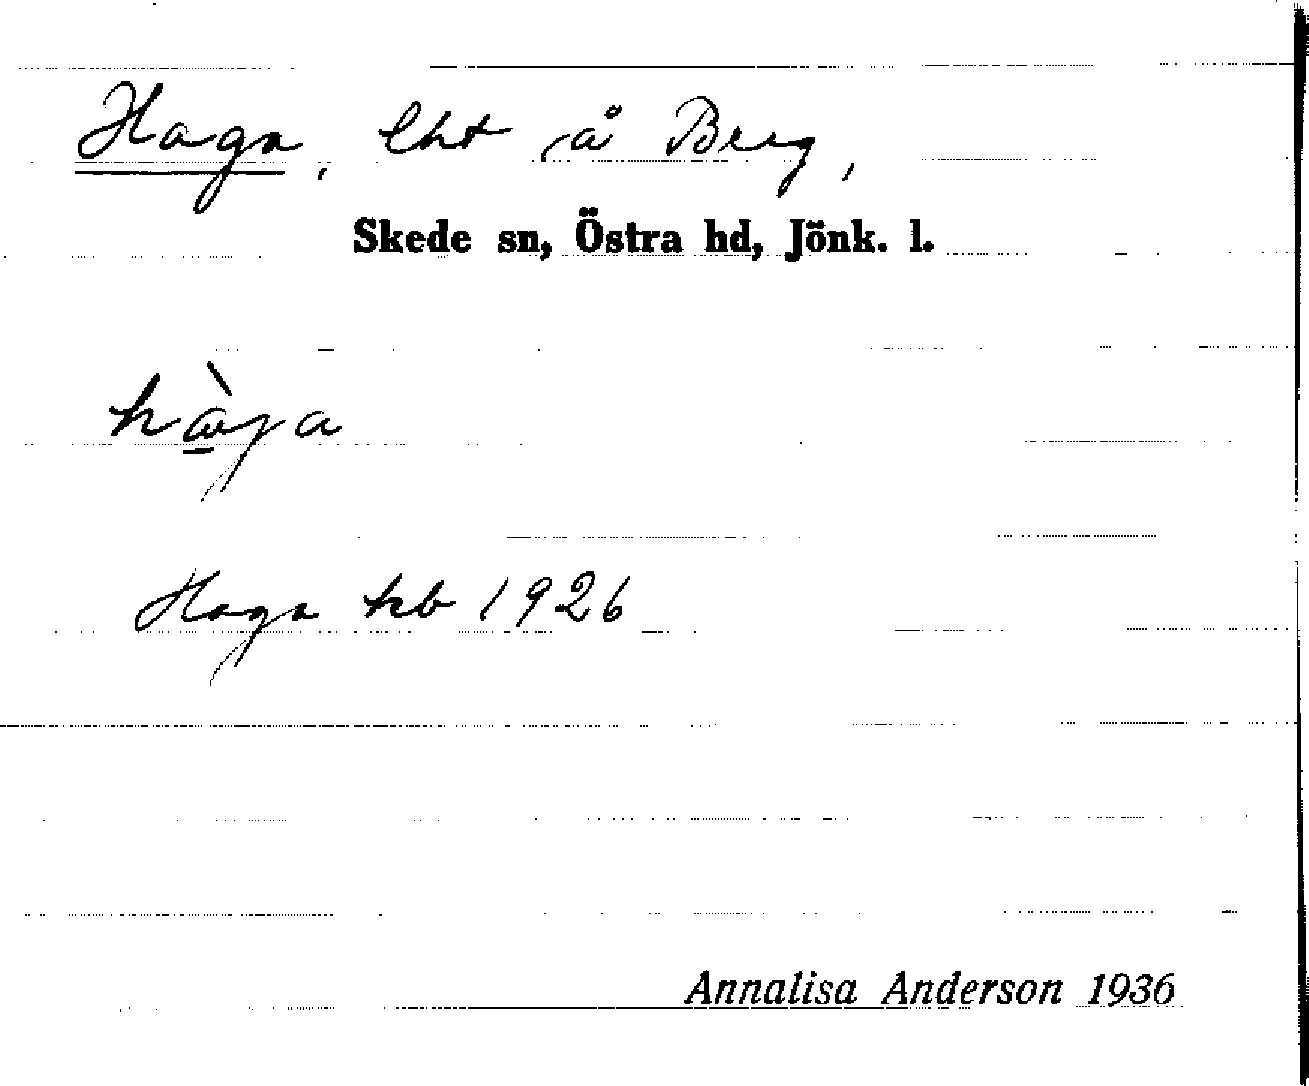 Haga, lht å Berg,
Skede sn, Östra hd, Jönk. l.
Haga kb 1926
Annalisa Anderson 1936